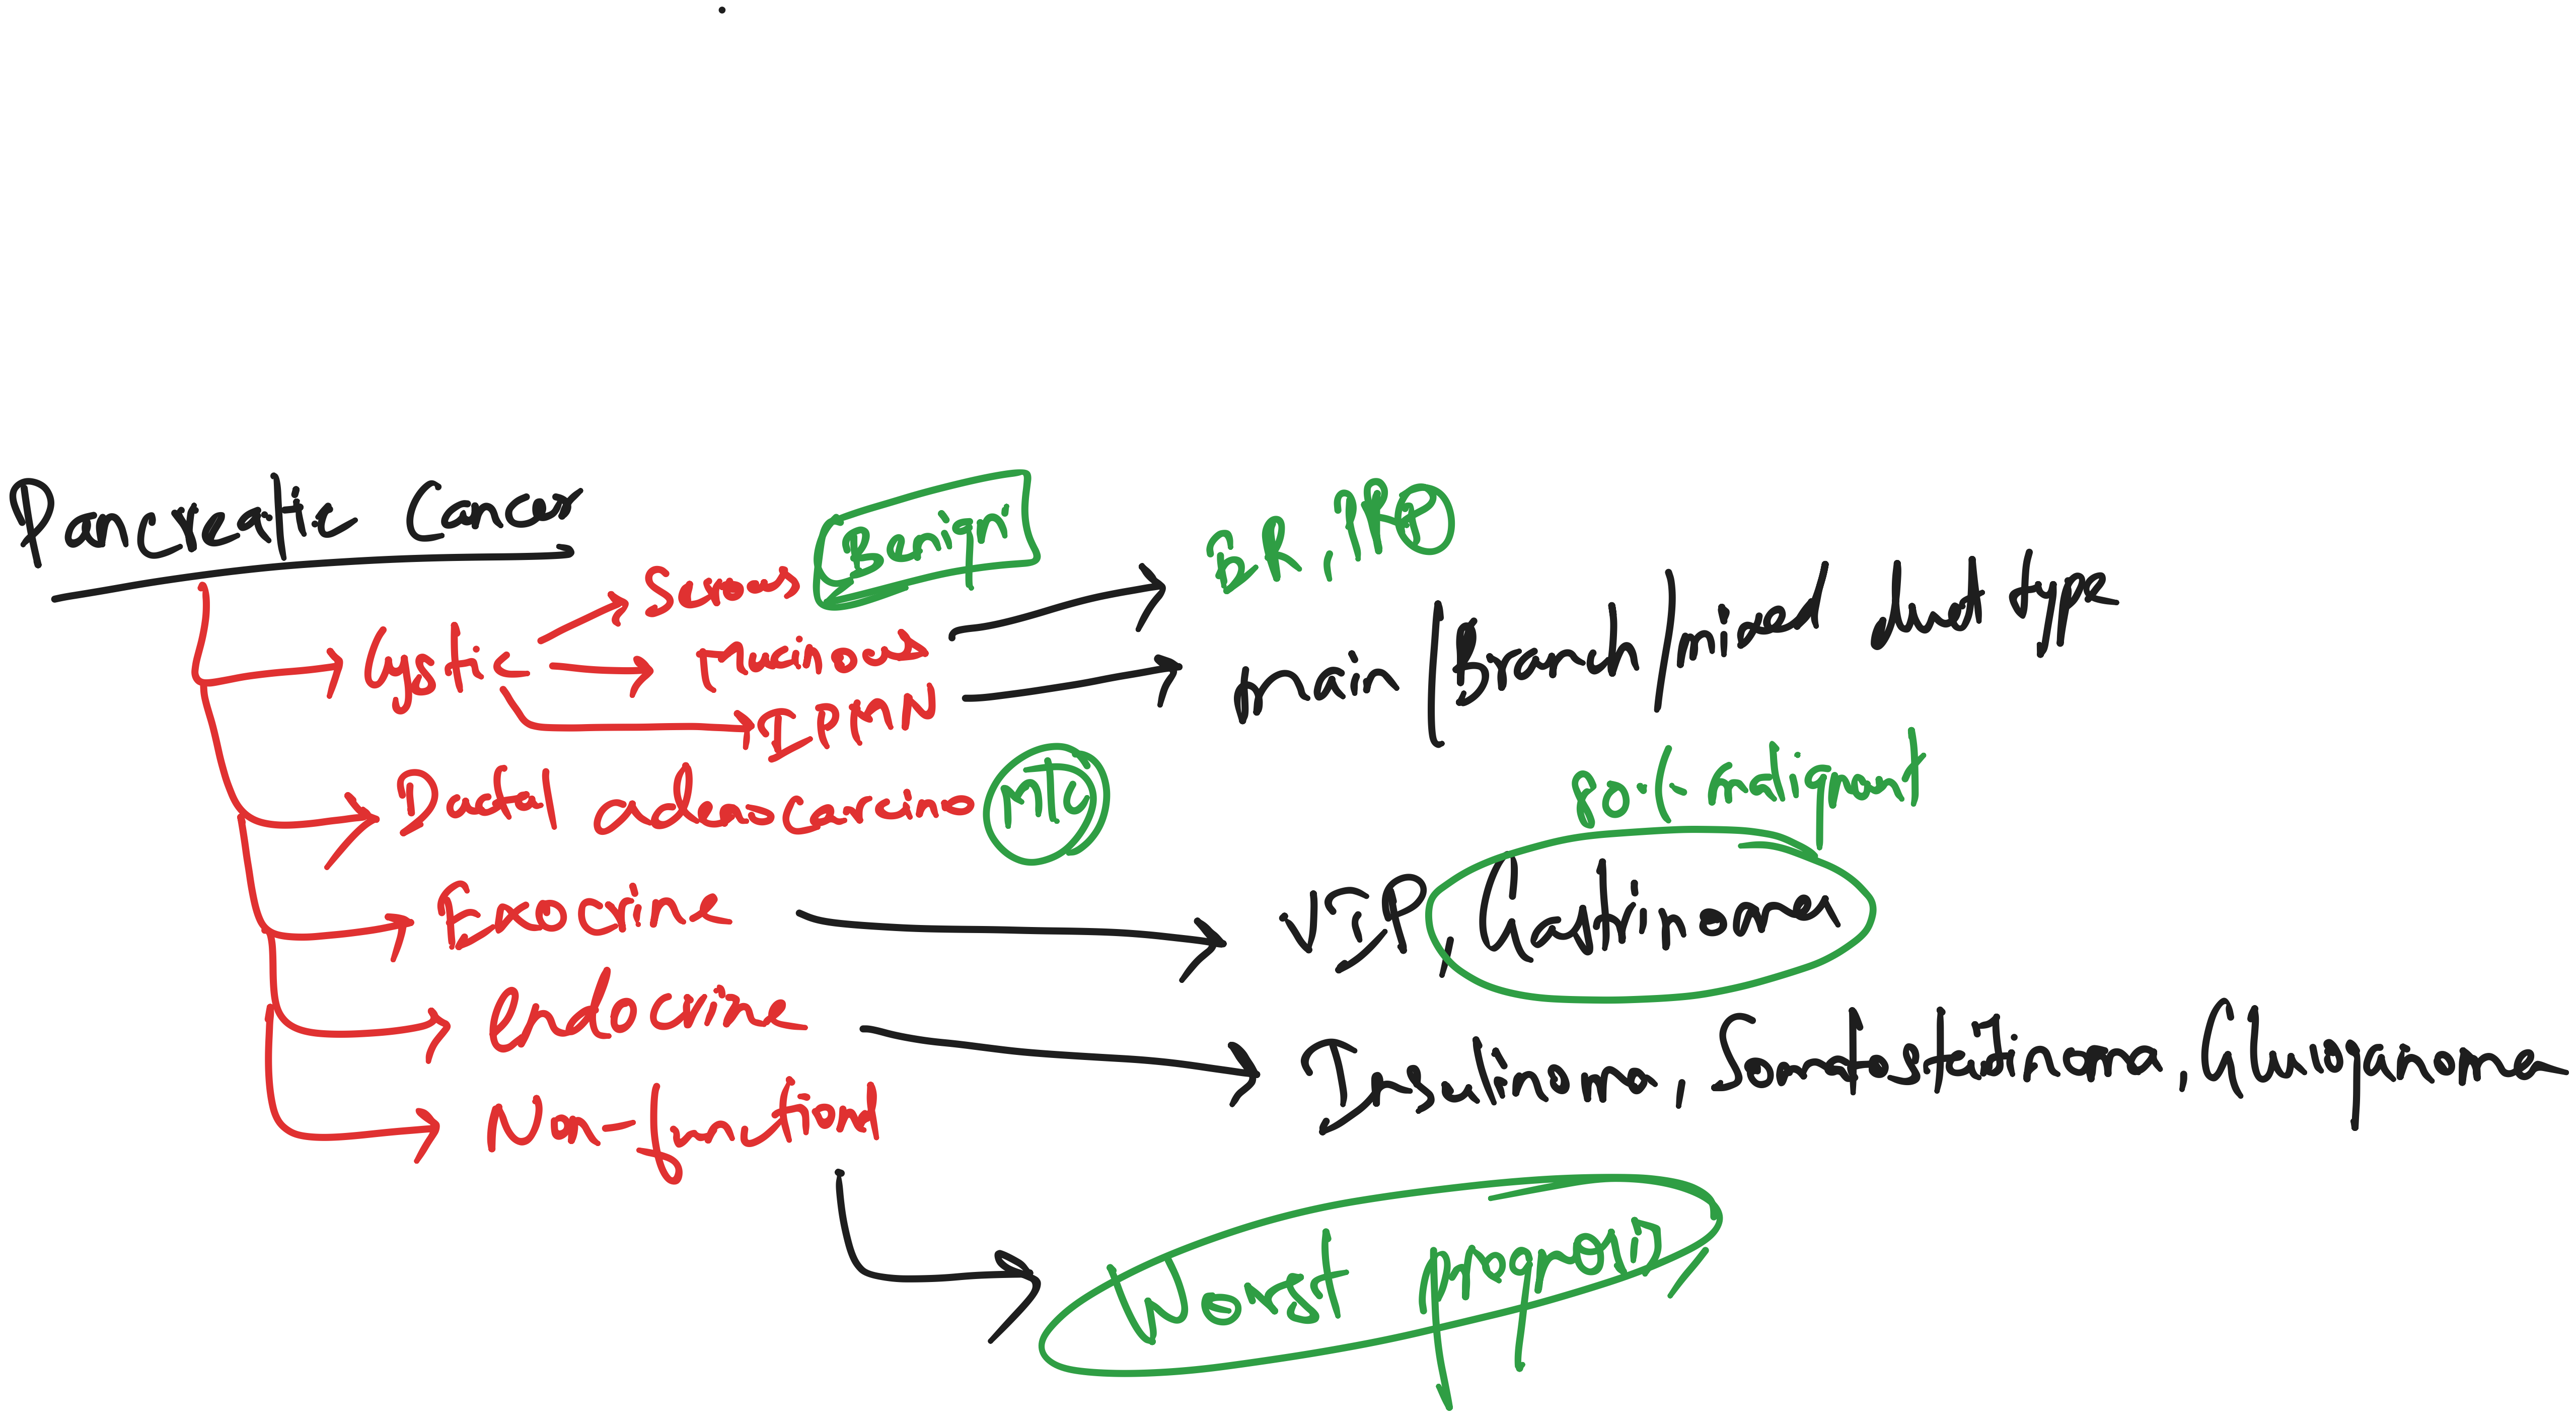 Pancreatic Cancer
Cystic
Serous Benign
Mucinous ER, PR
IPMN main / Branch / mixed duct type
Ductal adenocarcinoma
80% malignant
Exocrine VIP, Gastrinoma
Endocrine Insulinoma, Somatostatinoma, Glucoganoma
Non-functional
Worst prognosis